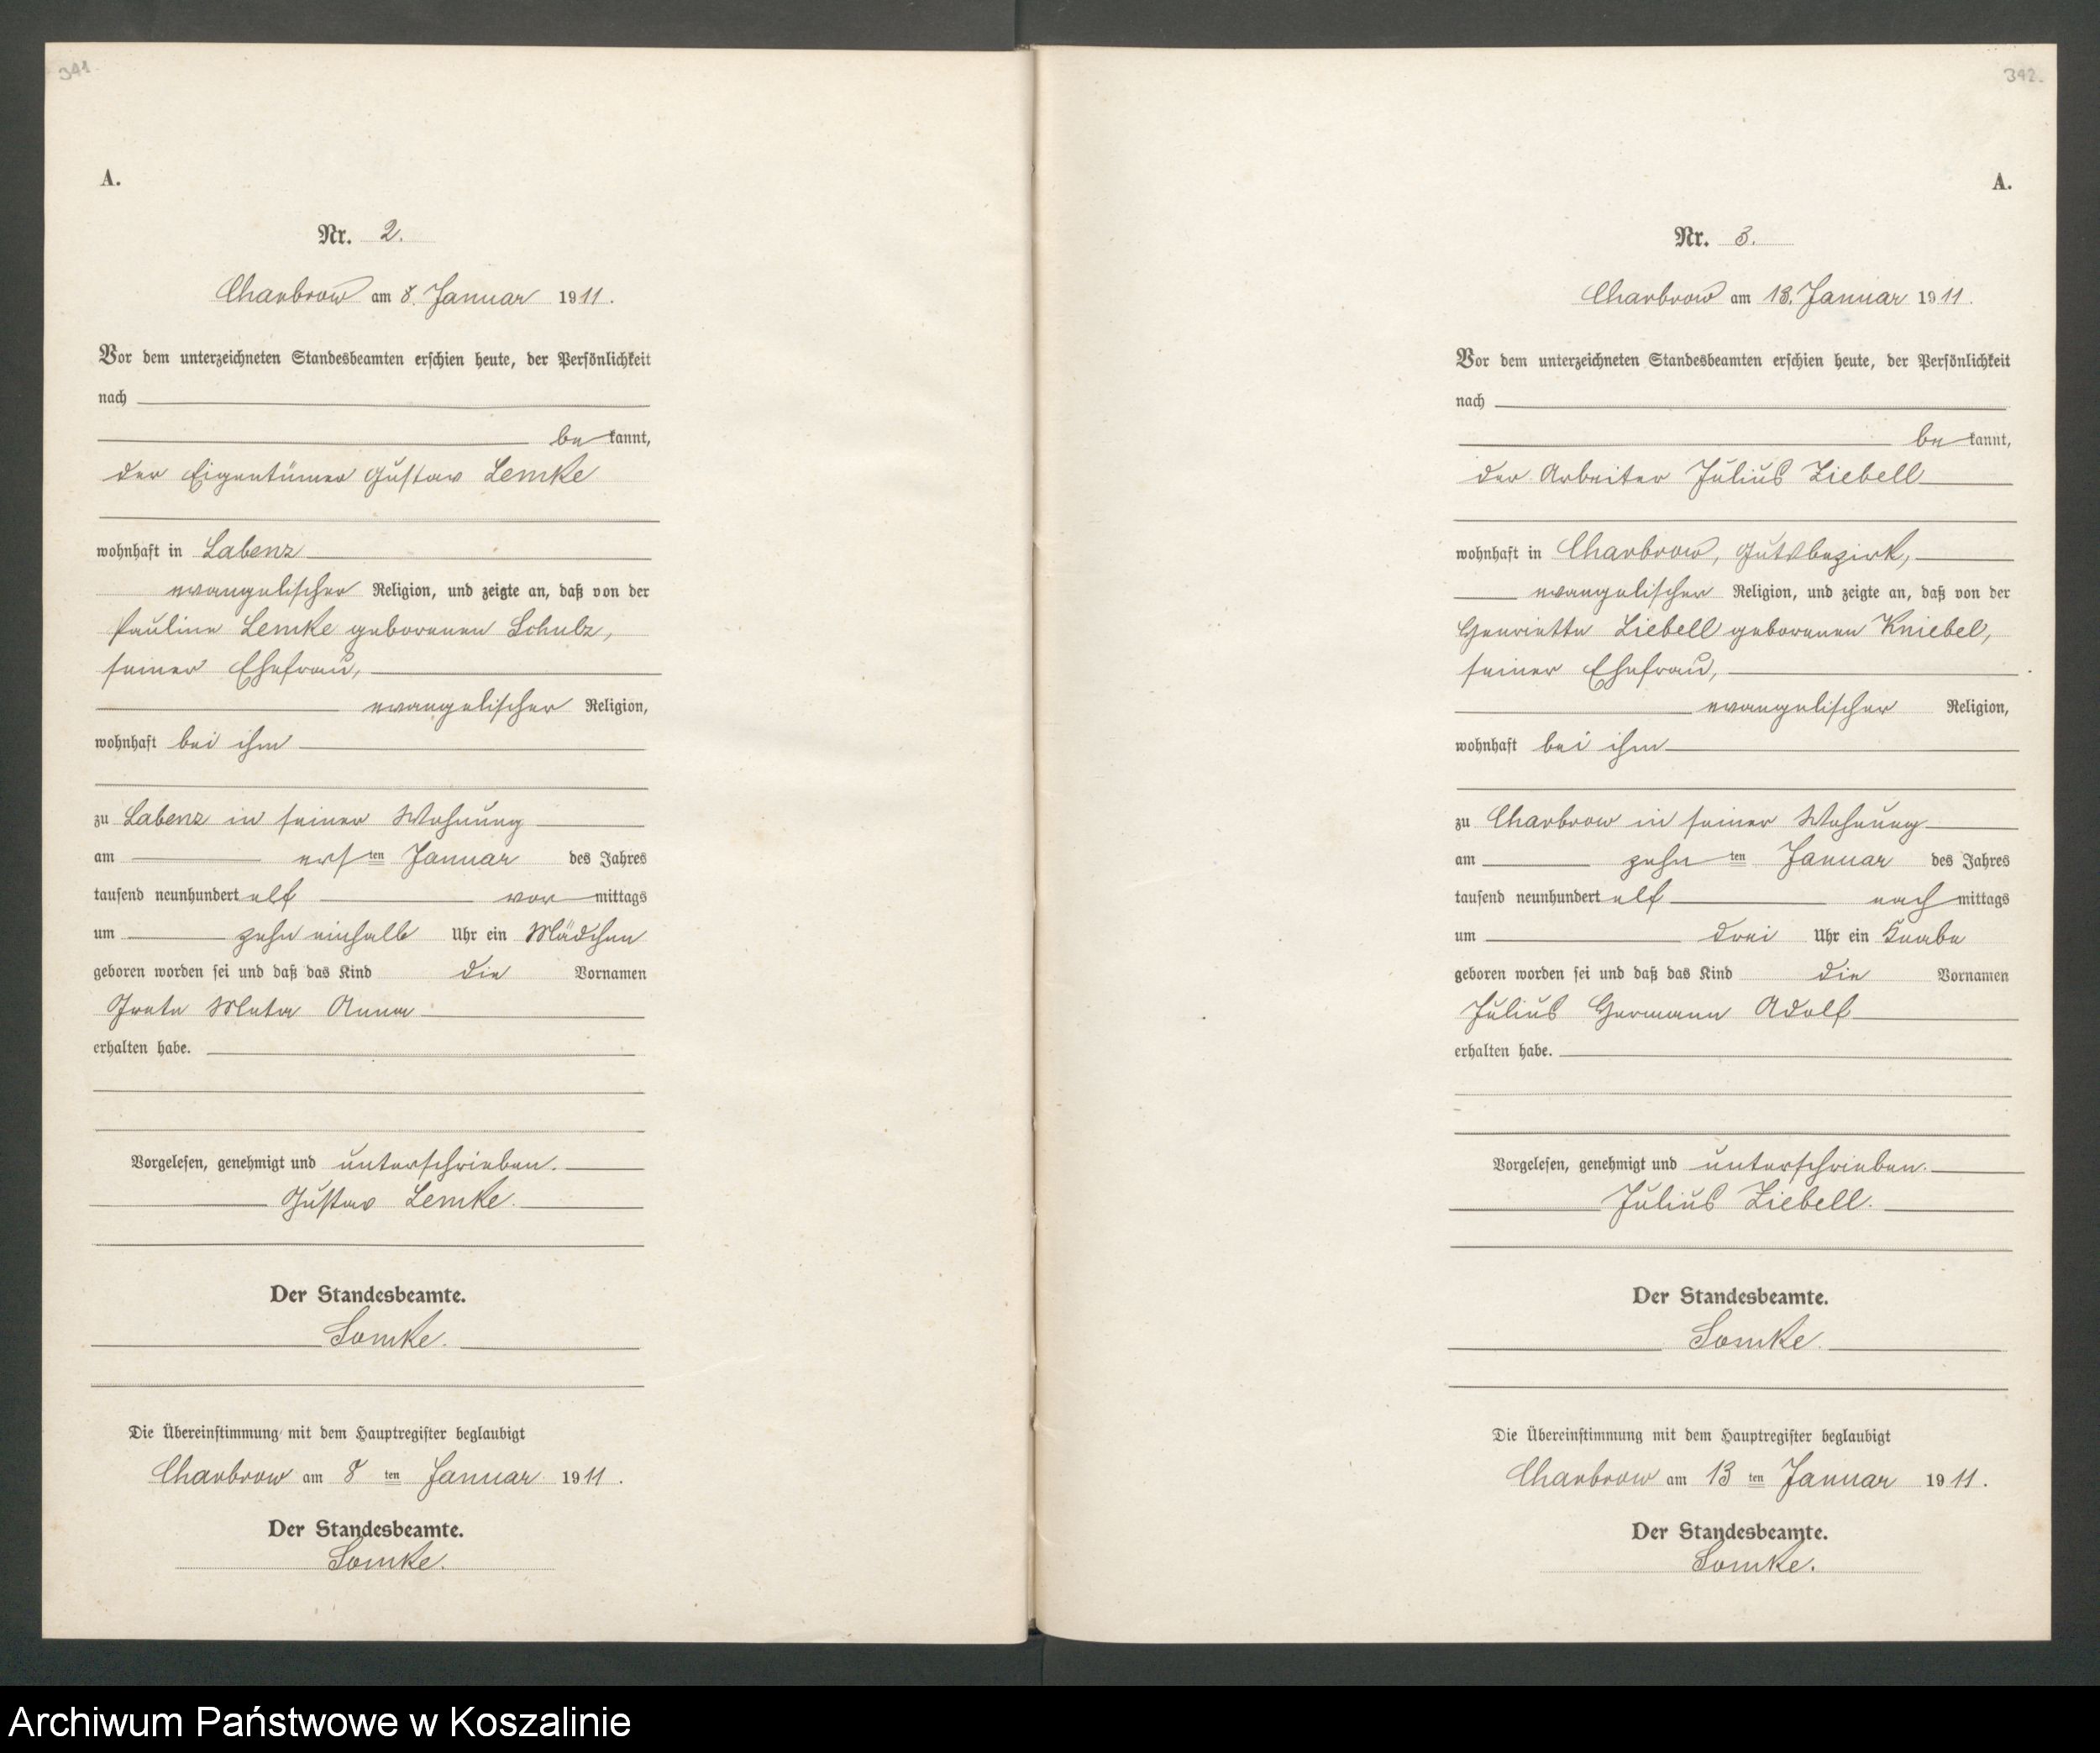 341.
A.
Nr. 2.
Charbrow am 8. Januar 1911.
Vor dem unterzeichneten Standesbeamten erschien heute, der Persönlichkeit
nach
be kannt,
der Eigentümer Gustav Lemke
wohnhaft in Labenz
evangelischer Religion, und zeigte an, daß von der
Pauline Lemke geborenen Schulz,
seiner Ehefrau,
evangelischer Religion,
wohnhaft bei ihm
zu Labenz in seiner Wohnung
am ersten Januar des Jahres
tausend neunhundert elf vor mittags
um zehn einhalb Uhr ein Mädchen
geboren worden sei und daß das Kind die Vornamen
Grete Meta Anna
erhalten habe.
Vorgelesen, genehmigt und unterschrieben.
Gustav Lemke.
Der Standesbeamte.
Somke.
Die Übereinstimmung mit dem Hauptregister beglaubigt
Charbrow am 8 ten Januar 1911.
Der Standesbeamte.
Somke.
342.
A.
Nr. 3.
Charbrow am 13. Januar 1911.
Vor dem unterzeichneten Standesbeamten erschien heute, der Persönlichkeit
nach
be kannt,
der Arbeiter Julius Ziebell
wohnhaft in Charbrow, Gutsbezirk,
evangelischer Religion, und zeigte an, daß von der
Henriette Ziebell geborenen Kniebel,
seiner Ehefrau,
evangelischer Religion,
wohnhaft bei ihm
zu Charbrow in seiner Wohnung
am zehn ten Januar des Jahres
tausend neunhundert elf nach mittags
um drei Uhr ein Knabe
geboren worden sei und daß das Kind die Vornamen
Julius Hermann Adolf
erhalten habe.
Vorgelesen, genehmigt und unterschrieben.
Julius Ziebell.
Der Standesbeamte.
Somke.
Die Übereinstimmung mit dem Hauptregister beglaubigt
Charbrow am 13 ten Januar 1911.
Der Standesbeamte.
Somke.
Archiwum Państwowe w Koszalinie